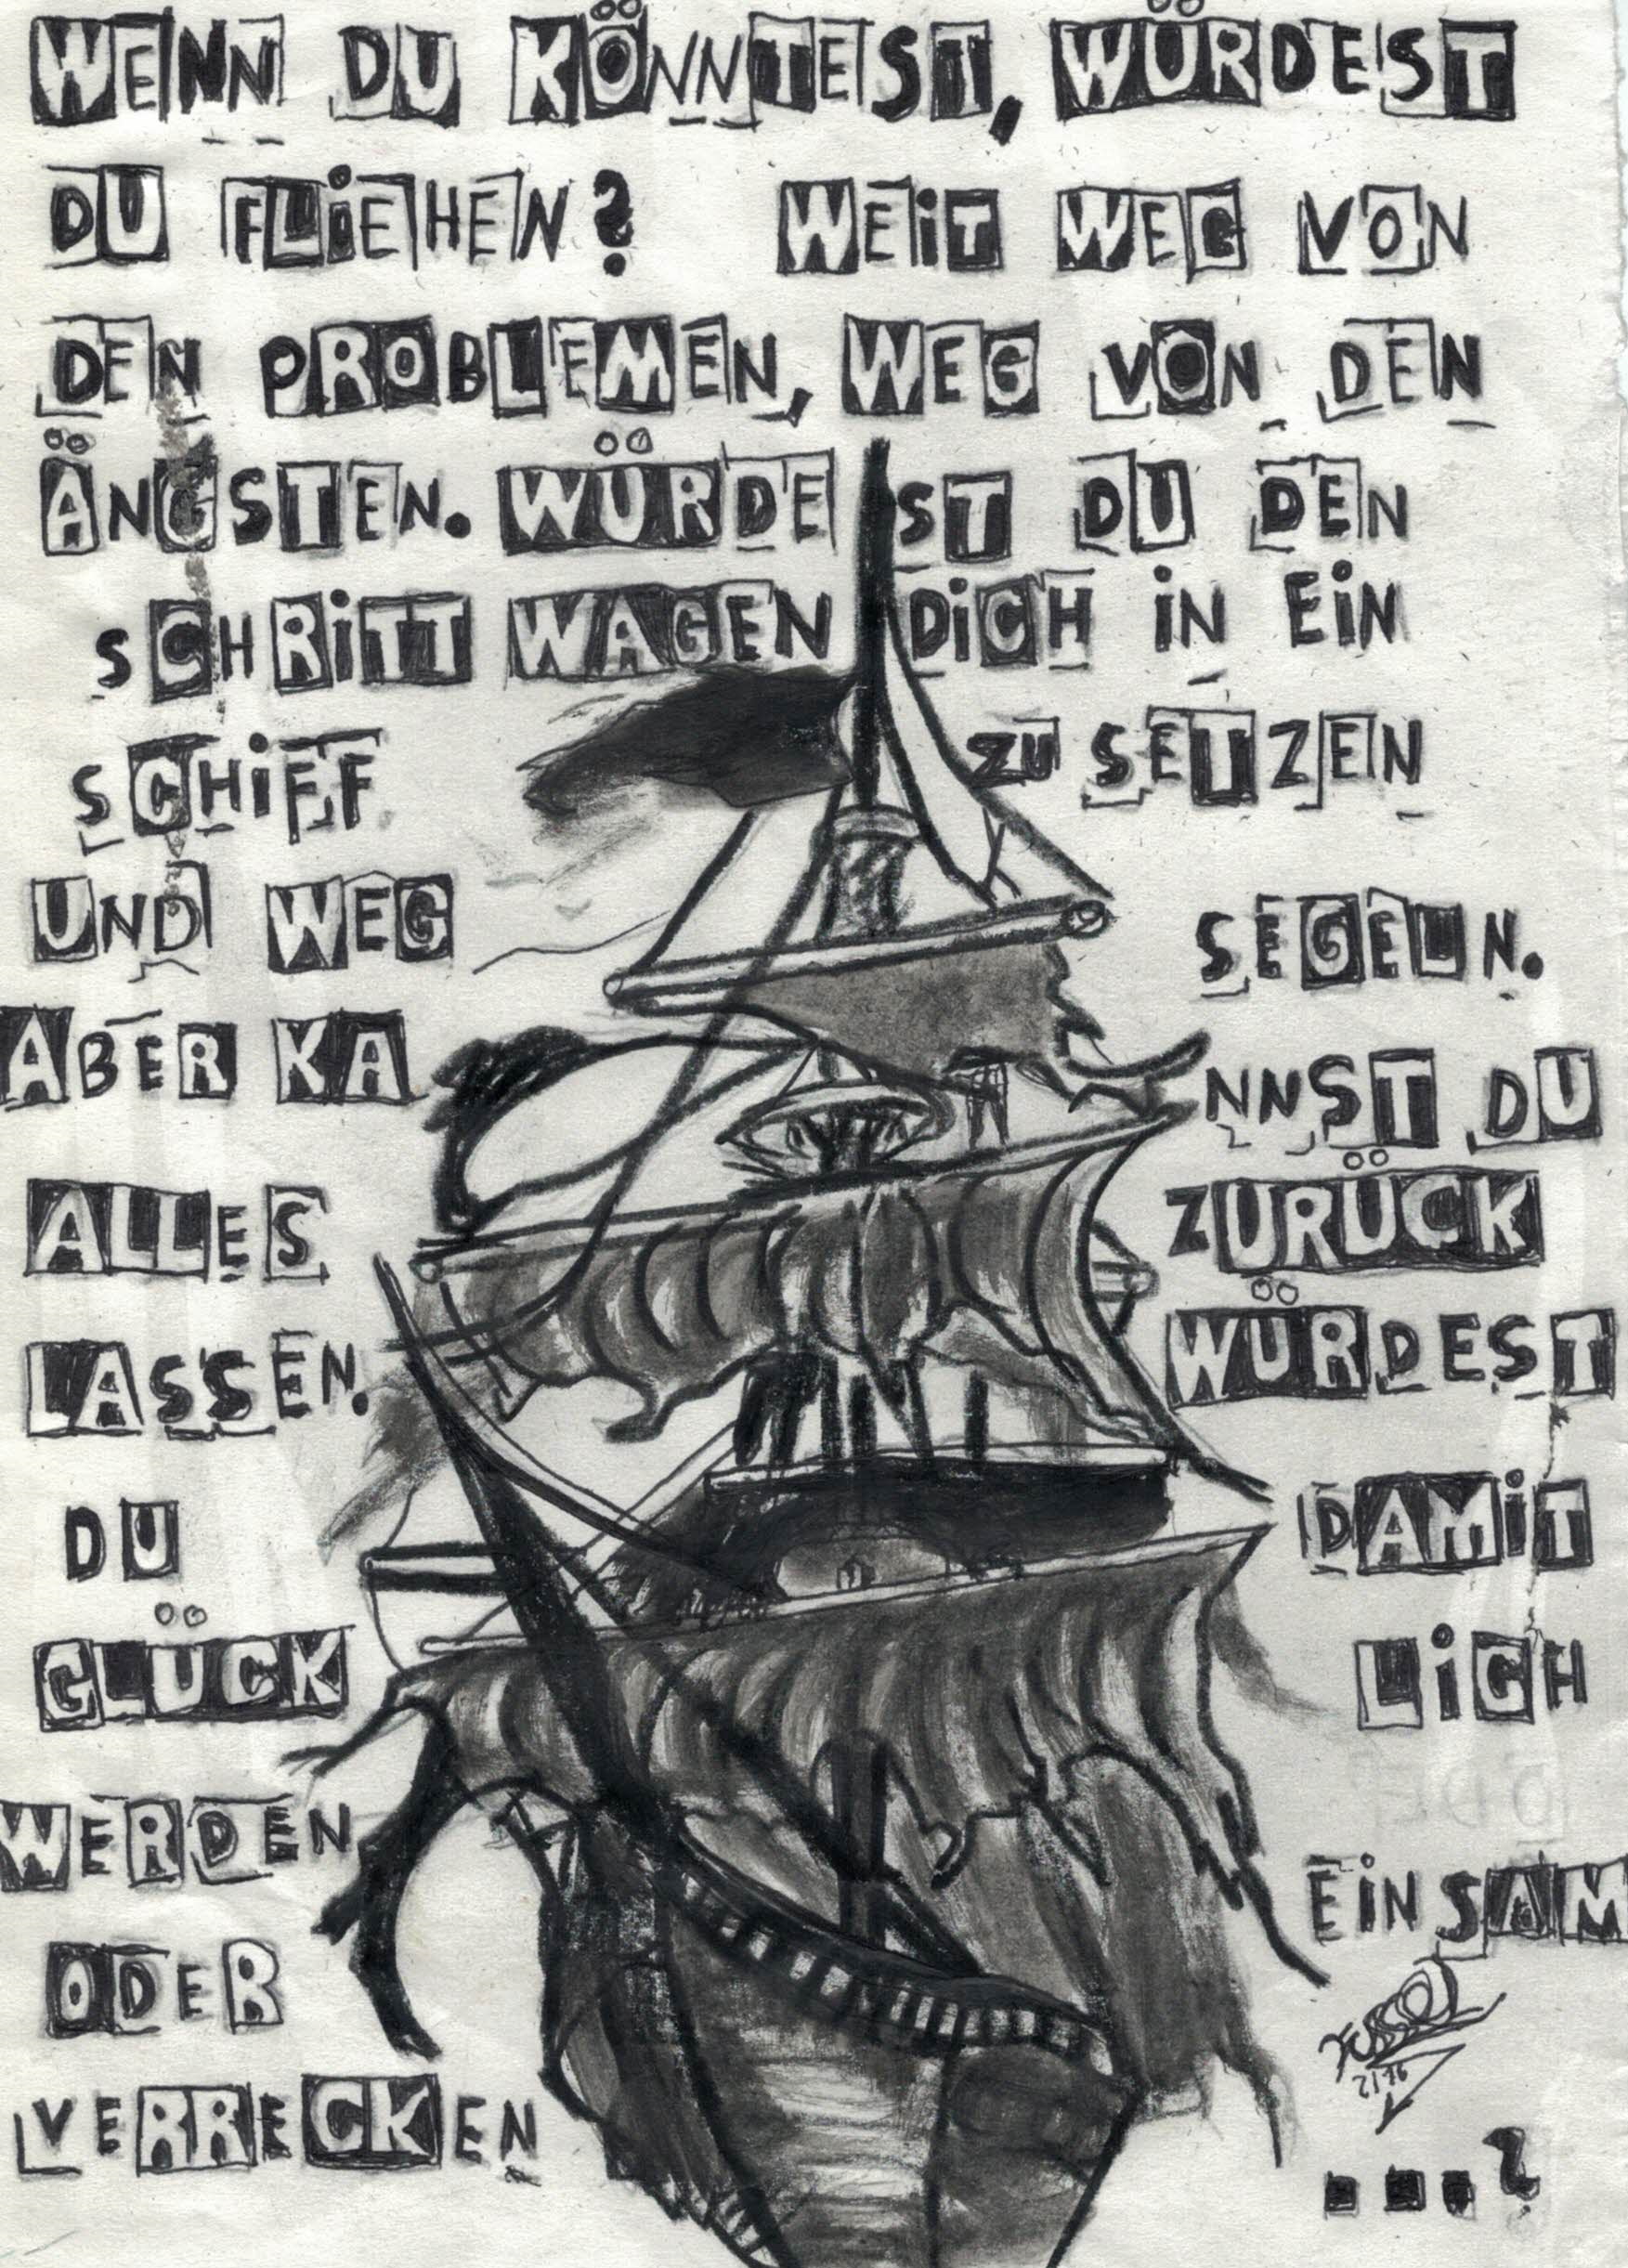 WENN DU KÖNNTEST, WÜRDEST
DU FLiEHEN? WEiT WEG VON
DEN PROBLEMEN, WEG VON DEN
ÄNGSTEN. WÜRDE ST DU DEN
SCHRiTT WAGEN DiCH iN EiN
SCHiFF ZU SETZEN
UND WEG SEGELN.
ABER KA NNST DU
ALLES ZURÜCK
LASSEN. WÜRDEST
DU DAMiT
GLÜCK LiCH
WERDEN EiNSAM
ODER
VERRECKEN ...?